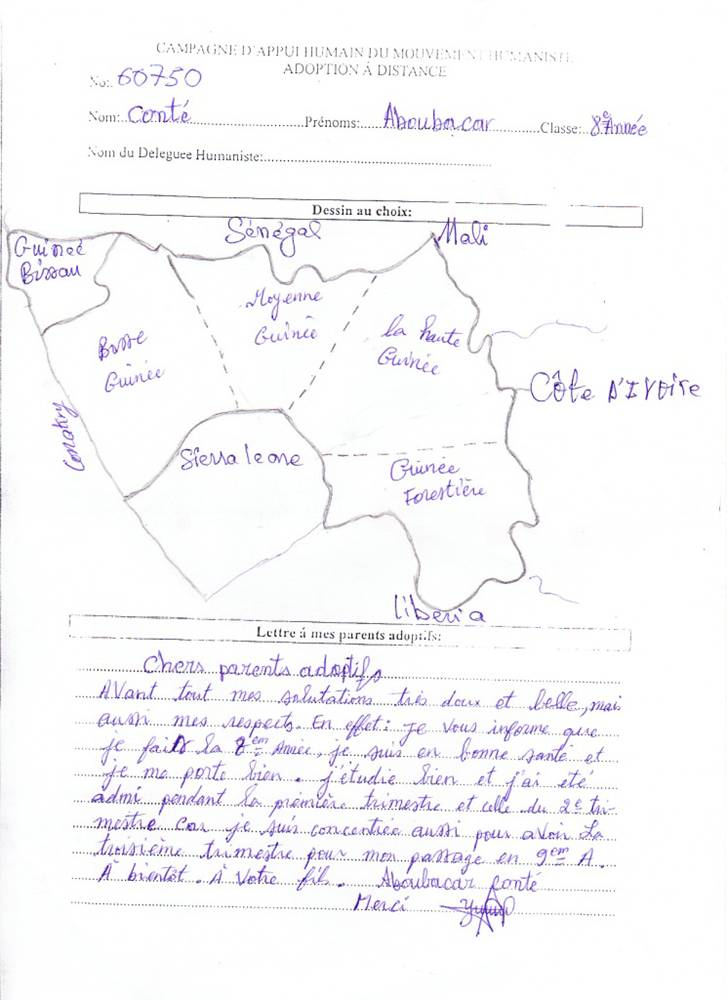 CAMPAGNE D'APPUI HUMAIN DU MOUVEMENT HUMANISTE
ADOPTION À DISTANCE
No: 60750
Nom: Conté Prénoms: Aboubacar Classe: 8e Année
Nom du Deleguee Humaniste:
Dessin au choix:
Guineé
Bissau
Sénégal
Mali
Moyenne
Guinée
la haute
Guinée
Basse
Guinée
Côte D'Ivoire
Conakry
Sierra leone
Guinée
Forestière
liberia
Lettre á mes parents adoptifs:
Chers parents adoptifs
Avant tout mes salutations très doux et belle, mais
aussi mes respects. En effet: je vous informe que
je fais la 8em Année, je suis en bonne santé et
je me porte bien. j'étudie bien et j'ai été
admi pendant la première trimestre et celle du 2e tri-
mestre car je suis concentrée aussi pour avoir la
troisième trimestre pour mon passage en 9em A.
À bientôt. À Votre fils. Aboubacar Conté
Merci